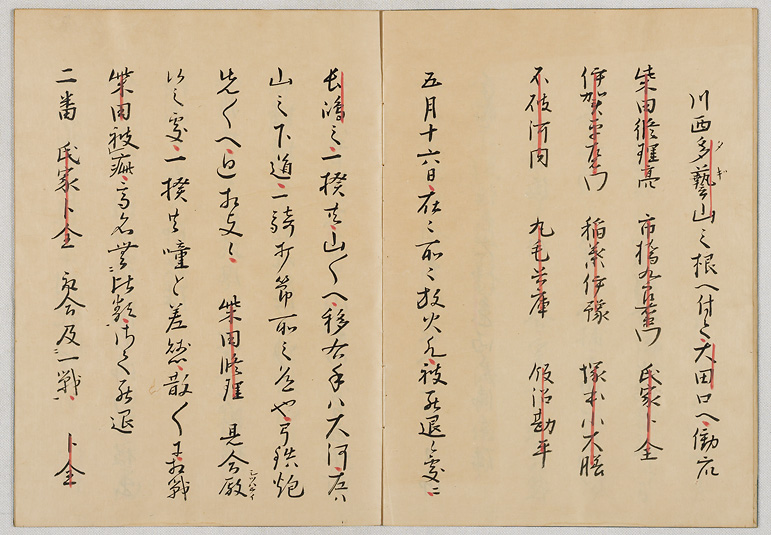 川西多藝山之根へ付て大田口へ働衆
タギ
柴田修理亮 市橋九郎右衛門 氏家卜全
伊賀平左衛門 稲葉伊豫 塚本小大膳
不破河内 丸毛兵庫 飯沼勘平
五月十六日在々所々放火候被罷退候処ニ
長嶋之一揆共山々へ移右手ハ大河左ハ
山之下道一騎打節所之道也弓鉄炮
先々へ廻相支候 柴田修理 見合殿
シツハライ
候之処一揆共噇と差懸散々ニ相戦
柴田被疵高名無比類さて罷退
二番 氏家卜全 取合及一戦 卜全